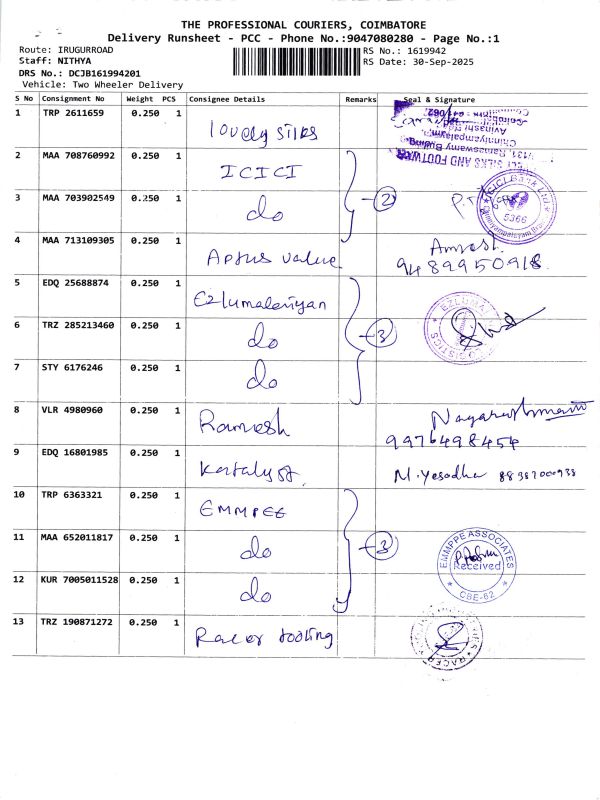 THE PROFESSIONAL COURIERS, COIMBATORE
Delivery Runsheet - PCC - Phone No.:9047080280 - Page No.:1
Route: IRUGURROAD
RS No.: 1619942
Staff: NITHYA
RS Date: 30-Sep-2025
DRS No.: DCJB161994201
Vehicle: Two Wheeler Delivery
S No Consignment No Weight PCS Consignee Details Remarks Seal & Signature
1 TRP 2611659 0.250 1 lovely silks
2 MAA 708760992 0.250 1 ICICI
3 MAA 703902549 0.250 1 do 2 ICICI Bank Ltd 5366
4 MAA 713109305 0.250 1 Aptus value 9489950918
5 EDQ 25688874 0.250 1 Ezlumaleniyan
6 TRZ 285213460 0.250 1 do 3
7 STY 6176246 0.250 1 do
8 VLR 4980960 0.250 1 Ramesh 9976498454
9 EDQ 16801985 0.250 1 Katalyst M.Yesodha
10 TRP 6363321 0.250 1 EMMPEE
11 MAA 652011817 0.250 1 do 3 EMMPPE ASSOCIATES Received CBE-62
12 KUR 7005011528 0.250 1 do
13 TRZ 190871272 0.250 1 Racer tooling RACER